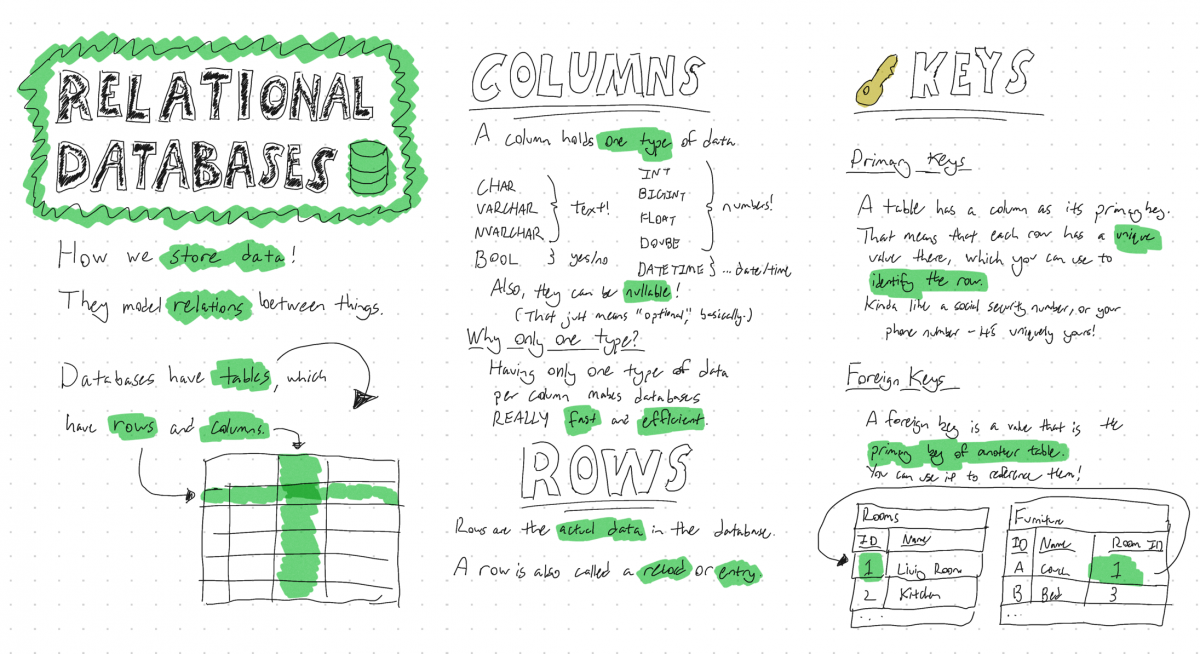 RELATIONAL
DATABASES
How we store data!
They model relations between things.
Databases have tables, which
have rows and columns.
COLUMNS
A column holds one type of data.
CHAR
VARCHAR
NVARCHAR
Text!
BOOL
yes/no
INT
BIGINT
FLOAT
DOUBE
numbers!
DATETIME
...date/time
Also, they can be nullable!
(That just means "optional," basically.)
Why only one type?
Having only one type of data
per column makes databases
REALLY fast and efficient.
ROWS
Rows are the actual data in the database.
A row is also called a record or entry.
KEYS
Primary Keys
A table has a column as its primary key.
That means that each row has a unique
value there, which you can use to
identify the row.
Kinda like a social security number, or your
phone number - it's uniquely yours!
Foreign Keys
A foreign key is a value that is the
primary key of another table.
You can use it to reference them!
Rooms
ID Name
1 Living Room
2 Kitchen
...
Furniture
ID Name Room ID
A Couch 1
B Bed 3
...